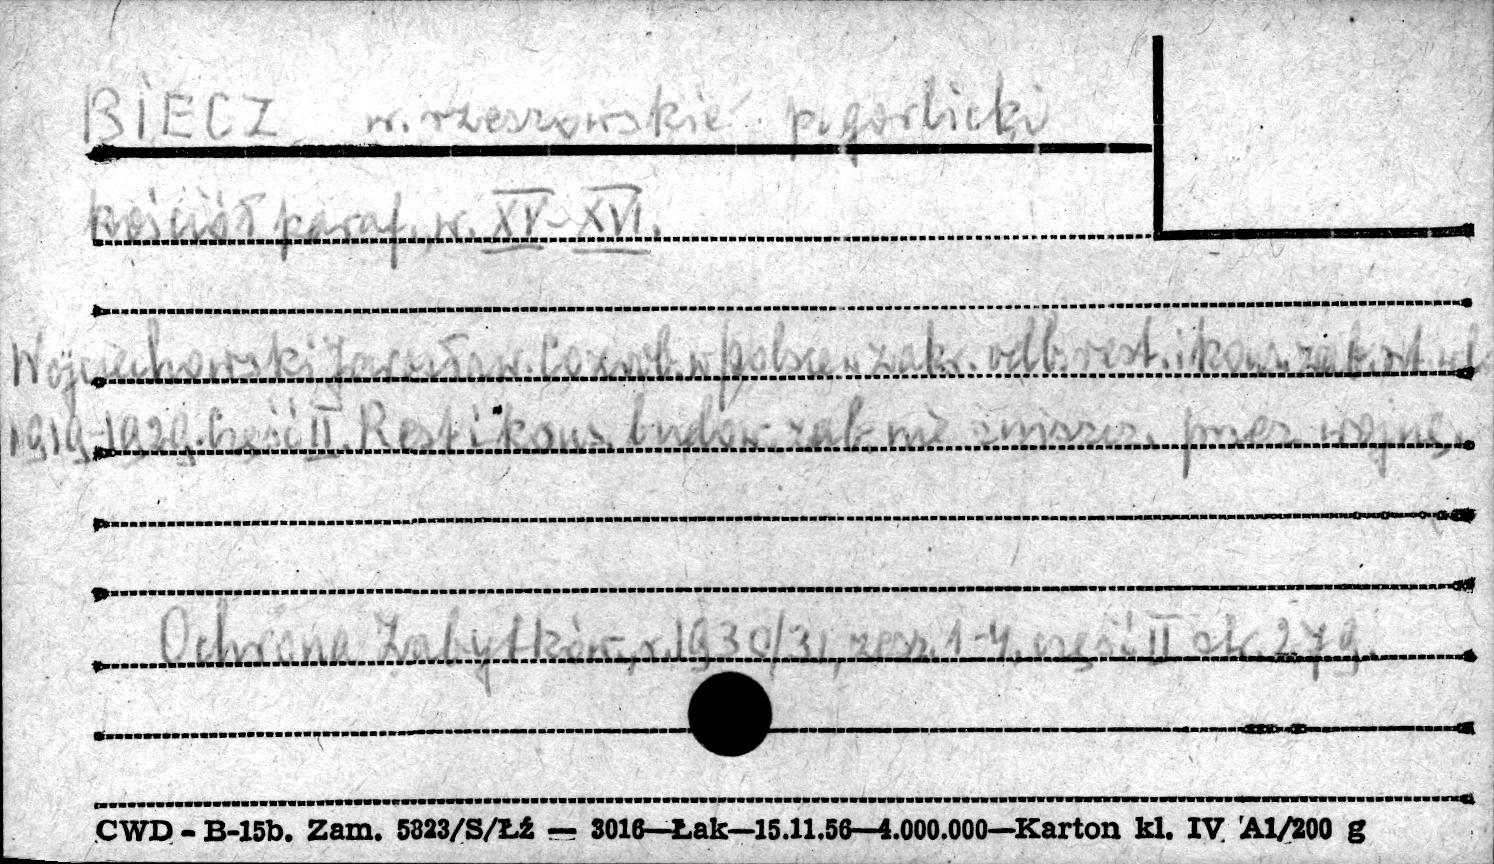 BIECZ w. rzeszowskie p. gorlicki
kościół paraf. w. XV-XVI.
Wojciechowski Jarosław. Co zrob. w Polsce w zakr. odb. rest. i kons. zab. szt. w l.
1919-1929. Część II. Rest. i kons. budow. zab. nie zniszcz. przez wojnę.
Ochrona Zabytków, r. 1930/31, zesz. 1-4, część II str. 279.
CWD - B-15b. Zam. 5823/S/Łź — 3016—Łak—15.11.56—4.000.000—Karton kl. IV A1/200 g